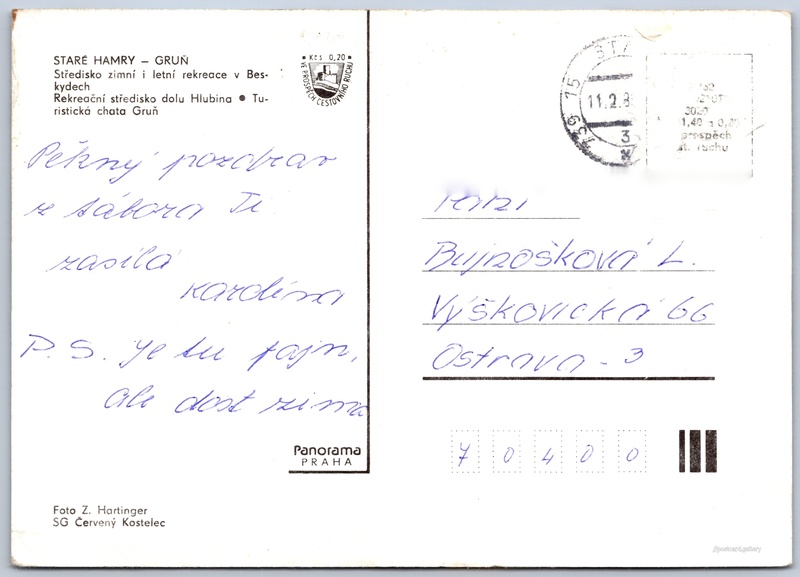 STARÉ HAMRY – GRUŇ
Středisko zimní i letní rekreace v Bes-
kydech
Rekreační středisko dolu Hlubina ● Tu-
ristická chata Gruň
Kčs 0,20
VE PROSPĚCH CESTOVNÍHO RUCHU
Pěkný pozdrav
z tábora Ti
zasílá
Kardina
P.S. Je tu fajn,
ale dost zima
Panorama
PRAHA
Foto Z. Hartinger
SG Červený Kostelec
739 15
11.2.8
1,40 + 0,20
prospěch
st. ruchu
Bujnošková L.
Výškovická 66
Ostrava - 3
7 0 4 0 0